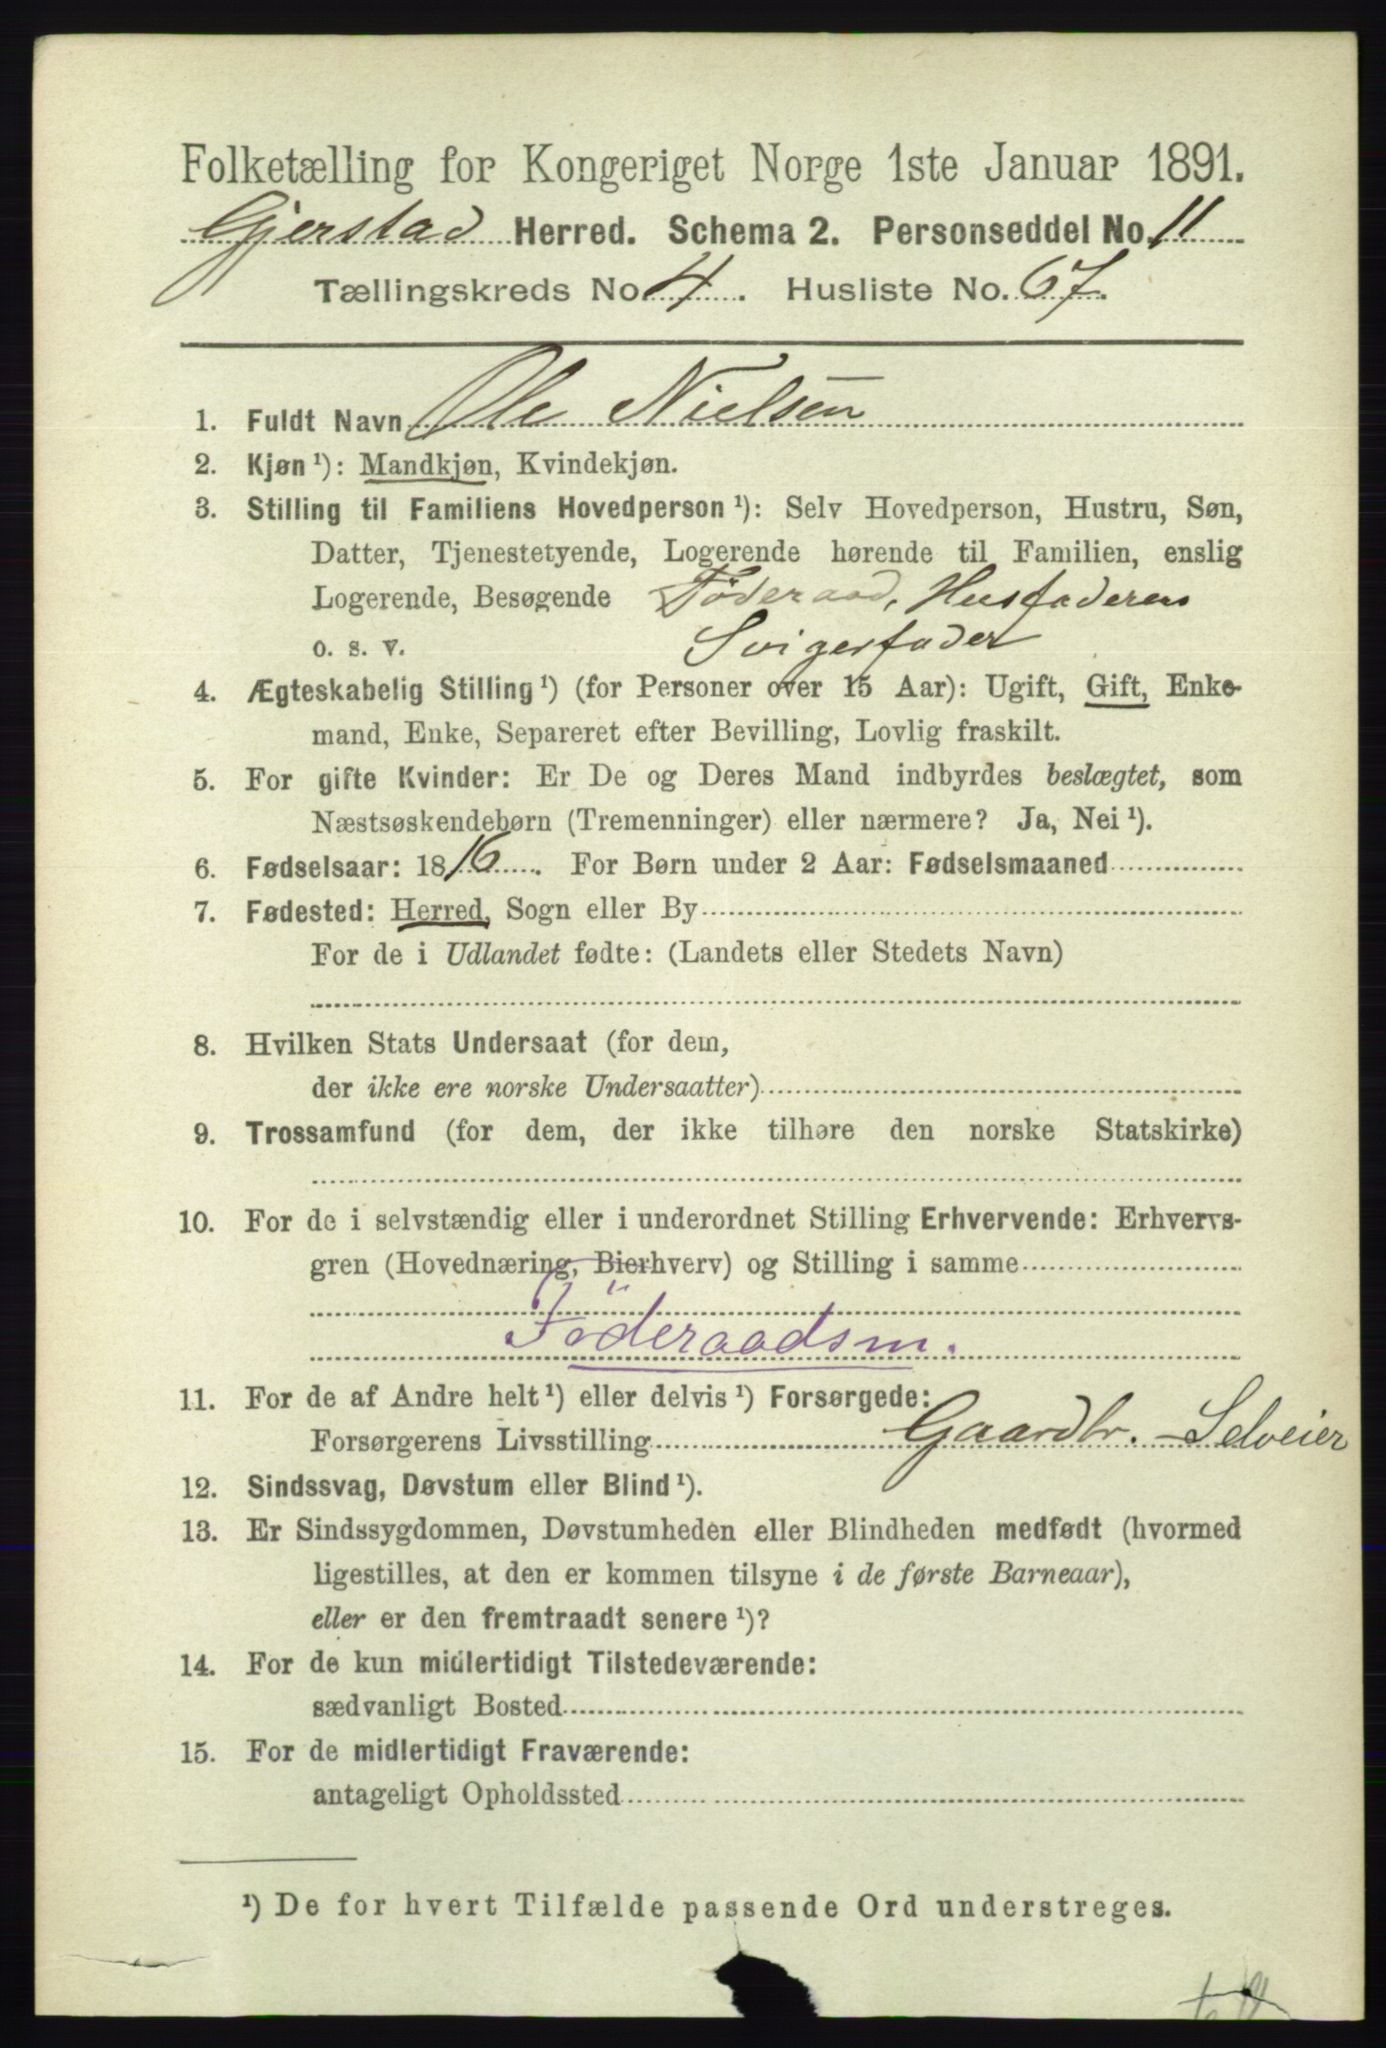 Folketælling for Kongeriget Norge 1ste Januar 1891.
Gjerstad Herred. Schema 2. Personseddel No. 11
Tællingskreds No. 4. Husliste No. 67.
1. Fuldt Navn Ole Nielsen
2. Kjøn ¹): Mandkjøn, Kvindekjøn.
3. Stilling til Familiens Hovedperson ¹): Selv Hovedperson, Hustru, Søn,
Datter, Tjenestetyende, Logerende hørende til Familien, enslig
Logerende, Besøgende Föderaad, Husfaderens
o. s. v. Svigerfader
4. Ægteskabelig Stilling ¹) (for Personer over 15 Aar): Ugift, Gift, Enke-
mand, Enke, Separeret efter Bevilling, Lovlig fraskilt.
5. For gifte Kvinder: Er De og Deres Mand indbyrdes beslægtet, som
Næstsøskendebørn (Tremenninger) eller nærmere? Ja, Nei ¹).
6. Fødselsaar: 1816. For Børn under 2 Aar: Fødselsmaaned
7. Fødested: Herred, Sogn eller By
For de i Udlandet fødte: (Landets eller Stedets Navn)
8. Hvilken Stats Undersaat (for dem,
der ikke ere norske Undersaatter)
9. Trossamfund (for dem, der ikke tilhøre den norske Statskirke)
10. For de i selvstændig eller i underordnet Stilling Erhvervende: Erhvervs-
gren (Hovednæring, Bierhverv) og Stilling i samme
Föderaadsm.
11. For de af Andre helt ¹) eller delvis ¹) Forsørgede:
Forsørgerens Livsstilling Gaardbr. - Selveier
12. Sindssvag, Døvstum eller Blind ¹).
13. Er Sindssygdommen, Døvstumheden eller Blindheden medfødt (hvormed
ligestilles, at den er kommen tilsyne i de første Barneaar),
eller er den fremtraadt senere ¹)?
14. For de kun midlertidigt Tilstedeværende:
sædvanligt Bosted
15. For de midlertidigt Fraværende:
antageligt Opholdssted
¹) De for hvert Tilfælde passende Ord understreges.